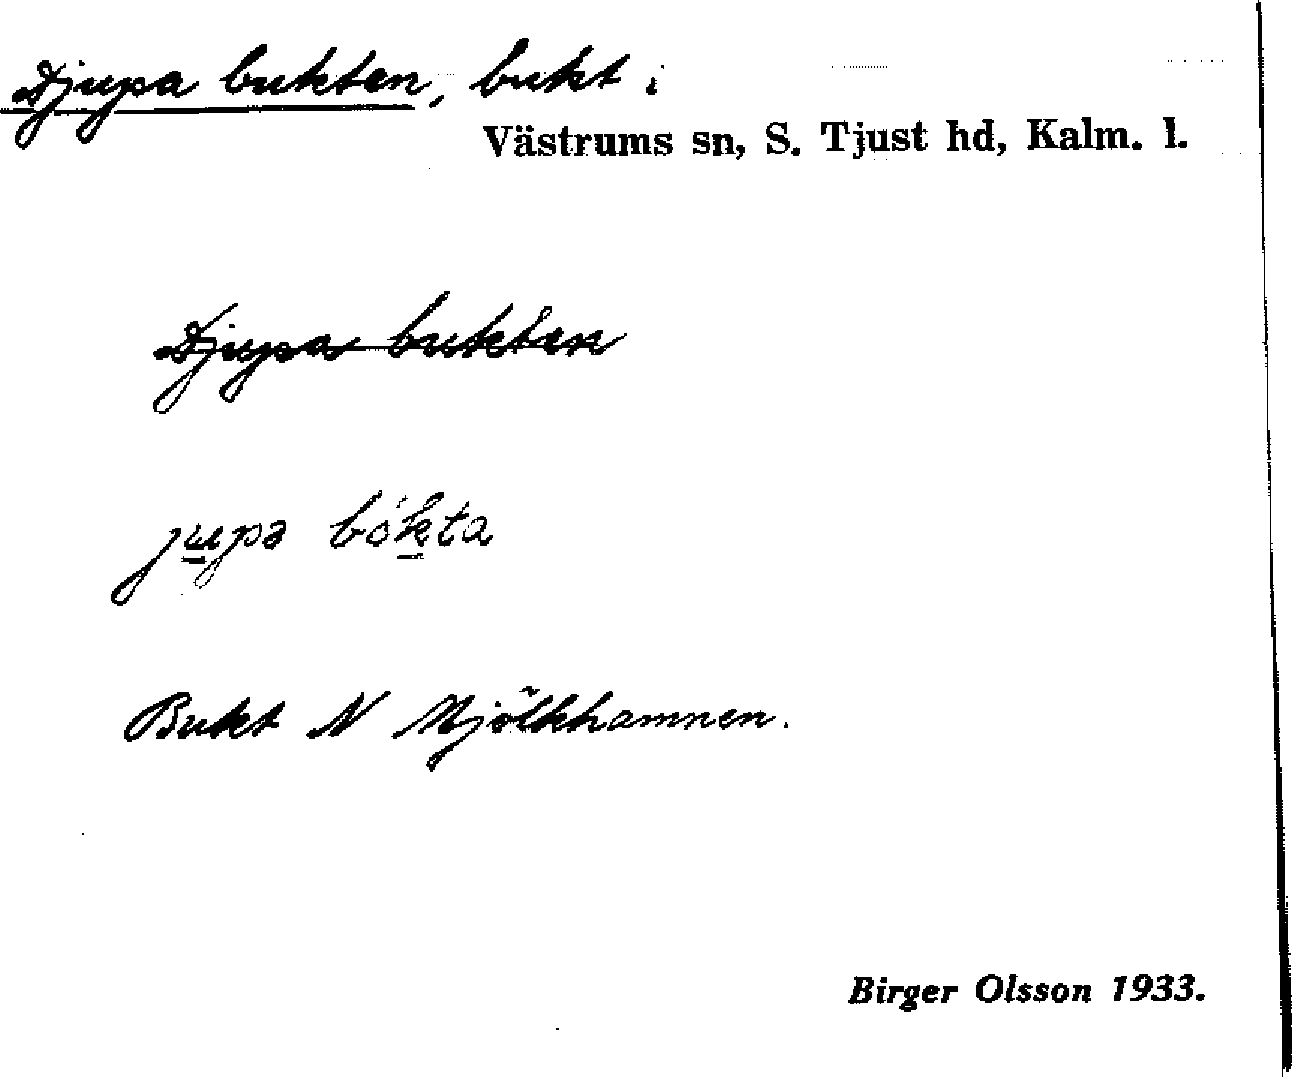 Djupa bukten, bukt i
Västrums sn, S. Tjust hd, Kalm. l.
Djupa bukten
jupa bókta
Bukt N Mjölkhamnen.
Birger Olsson 1933.